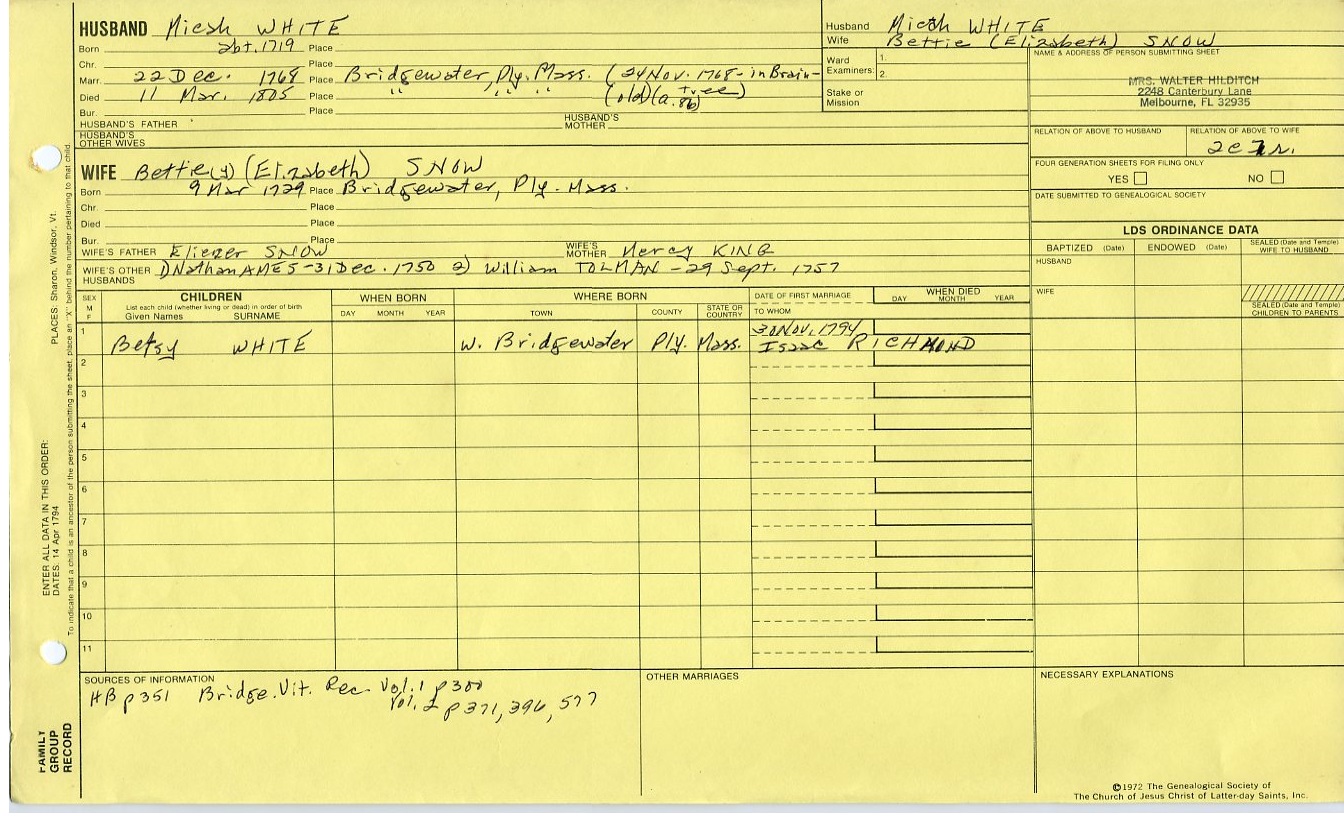 HUSBAND Micah WHITE
Born abt. 1719 Place
Chr. Place
Marr. 22 Dec. 1768 Place Bridgewater, Ply. Mass. (24 Nov. 1768 - in Brain-
Died 11 Mar. 1805 Place " " " (old) (a. 86) tree)
Bur. Place
HUSBAND'S FATHER HUSBAND'S MOTHER
HUSBAND'S OTHER WIVES
WIFE Bettie(y) (Elizabeth) SNOW
Born 9 Mar 1729 Place Bridgewater, Ply. Mass.
Chr. Place
Died Place
Bur. Place
WIFE'S FATHER Eliezer SNOW WIFE'S MOTHER Mercy KING
WIFE'S OTHER HUSBANDS 1) Nathan AMES - 31 Dec. 1750 2) William TOLMAN - 29 Sept. 1757
Husband Micah WHITE
Wife Bettie (Elizabeth) SNOW
Ward Examiners: 1.
2.
Stake or Mission
NAME & ADDRESS OF PERSON SUBMITTING SHEET
MRS. WALTER HILDITCH
2248 Canterbury Lane
Melbourne, FL 32935
RELATION OF ABOVE TO HUSBAND RELATION OF ABOVE TO WIFE
2c7r.
FOUR GENERATION SHEETS FOR FILING ONLY
YES NO
DATE SUBMITTED TO GENEALOGICAL SOCIETY
LDS ORDINANCE DATA
BAPTIZED (Date) ENDOWED (Date) SEALED (Date and Temple) WIFE TO HUSBAND
HUSBAND
WIFE
SEALED (Date and Temple) CHILDREN TO PARENTS
SEX M F
CHILDREN
List each child (whether living or dead) in order of birth
Given Names SURNAME
WHEN BORN
DAY MONTH YEAR
WHERE BORN
TOWN COUNTY STATE OR COUNTRY
DATE OF FIRST MARRIAGE
TO WHOM
WHEN DIED
DAY MONTH YEAR
1 Betsy WHITE W. Bridgewater Ply. Mass. 30 Nov. 1794
Isaac RICHMOND
2
3
4
5
6
7
8
9
10
11
SOURCES OF INFORMATION
HB p351 Bridge. Vit. Rec. Vol. 1 p300
Vol. 2 p371, 396, 577
OTHER MARRIAGES
NECESSARY EXPLANATIONS
©1972 The Genealogical Society of
The Church of Jesus Christ of Latter-day Saints, Inc.
ENTER ALL DATA IN THIS ORDER:
DATES: 14 Apr 1794 PLACES: Sharon, Windsor, Vt.
To indicate that a child is an ancestor of the person submitting the sheet, place an "X" behind the number pertaining to that child.
FAMILY
GROUP
RECORD